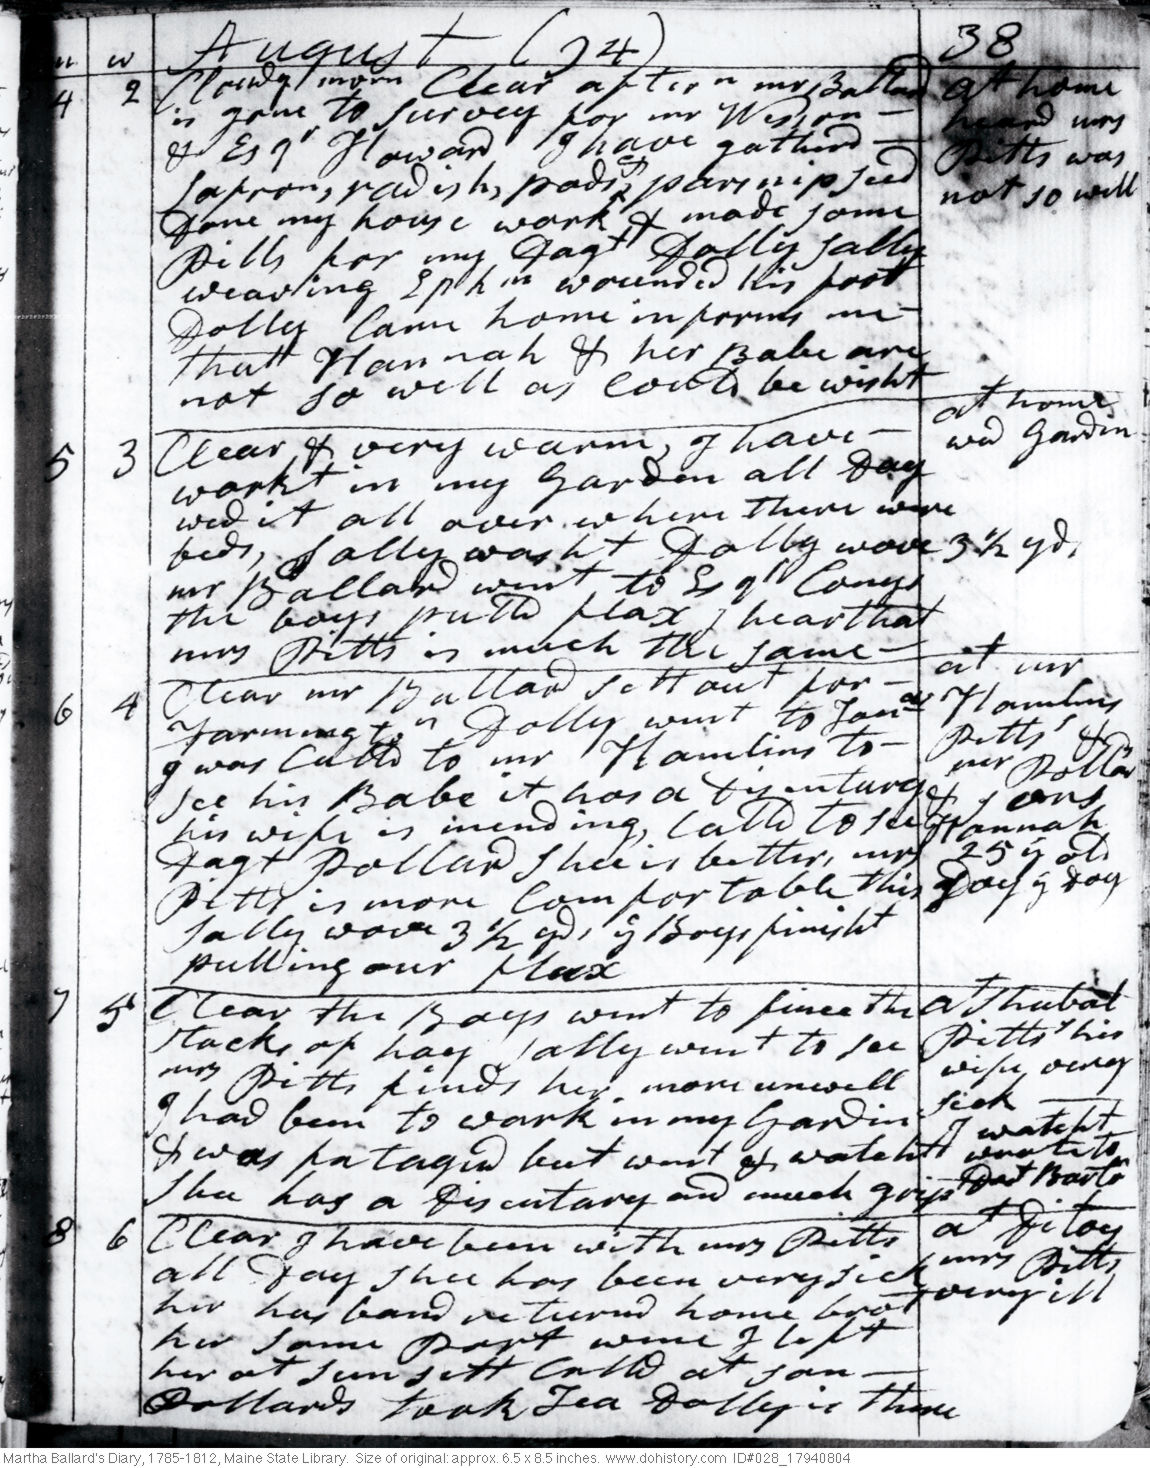 m w August (94) 38
4 2 Cloudy morn Clear aftern mr Ballard
is gone to survey for mr Wesson
& Esqr Howard I have gatherd
Safron, radish, pods, & parsnip seed
Done my house work & made some
Pills for my Dagt Dolly Sally
weaving Ephm wounded his foot
Dolly Came home informs me
that Hannah & her Babe are
not so well as Could be wisht
at home
heard mrs
Pitts was
not so well
5 3 Clear & very warm, I have
workt in my Garden all Day
wed it all over where there were
beds, Sally washt Dolly wove 3 ½ yd,
mr Ballard went to Esqr Conys
the boys pulld flax I hear that
mrs Pitts is much the same
at home
wed Gardin
6 4 Clear mr Ballard sett out for
Farmingtn Dolly went to Jonas
I was Calld to mr Hamlins to
see his Babe it has a disentary
his wife is mending, Calld to see
Dagt Pollard Shee is better, mrs
Pitts is more Comfortable this
Sally wove 3 ½ yd, ÿ Boys finisht
pulling our flax
at mr
Hamlins
Pitts' &
mr Pollar
& sons
Hannah
25 ÿ old
Day ÿ Day
7 5 Clear the Boys went to fince the
Stacks of hay Sally went to see
mrs Pitts finds her more unwell
I had been to work in my Gardin
& was fatagud but went & watcht
Shee has a Disentary and much grip
at Shubal
Pitts' his
wife very
sick
I watcht
wrote to
Dat Barto
8 6 Clear I have been with mrs Pitts
all Day shee has been very sick
her husband returnd home brot
her some Port wine I left
her at sun sett Calld at son
Pollards took Tea Dolly is there
at Ditoes
mrs Pitts
very ill
Martha Ballard's Diary, 1785-1812, Maine State Library. Size of original: approx. 6.5 x 8.5 inches. www.dohistory.com ID#028_17940804